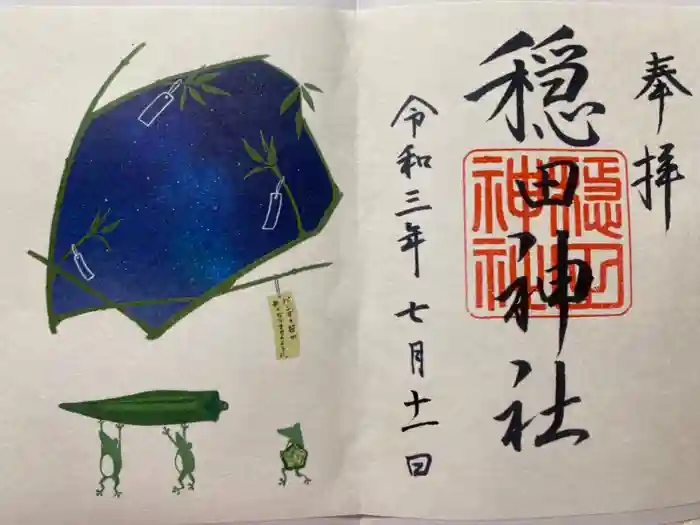 奉拝
穏田神社
穏田
神社
令和三年七月十一日